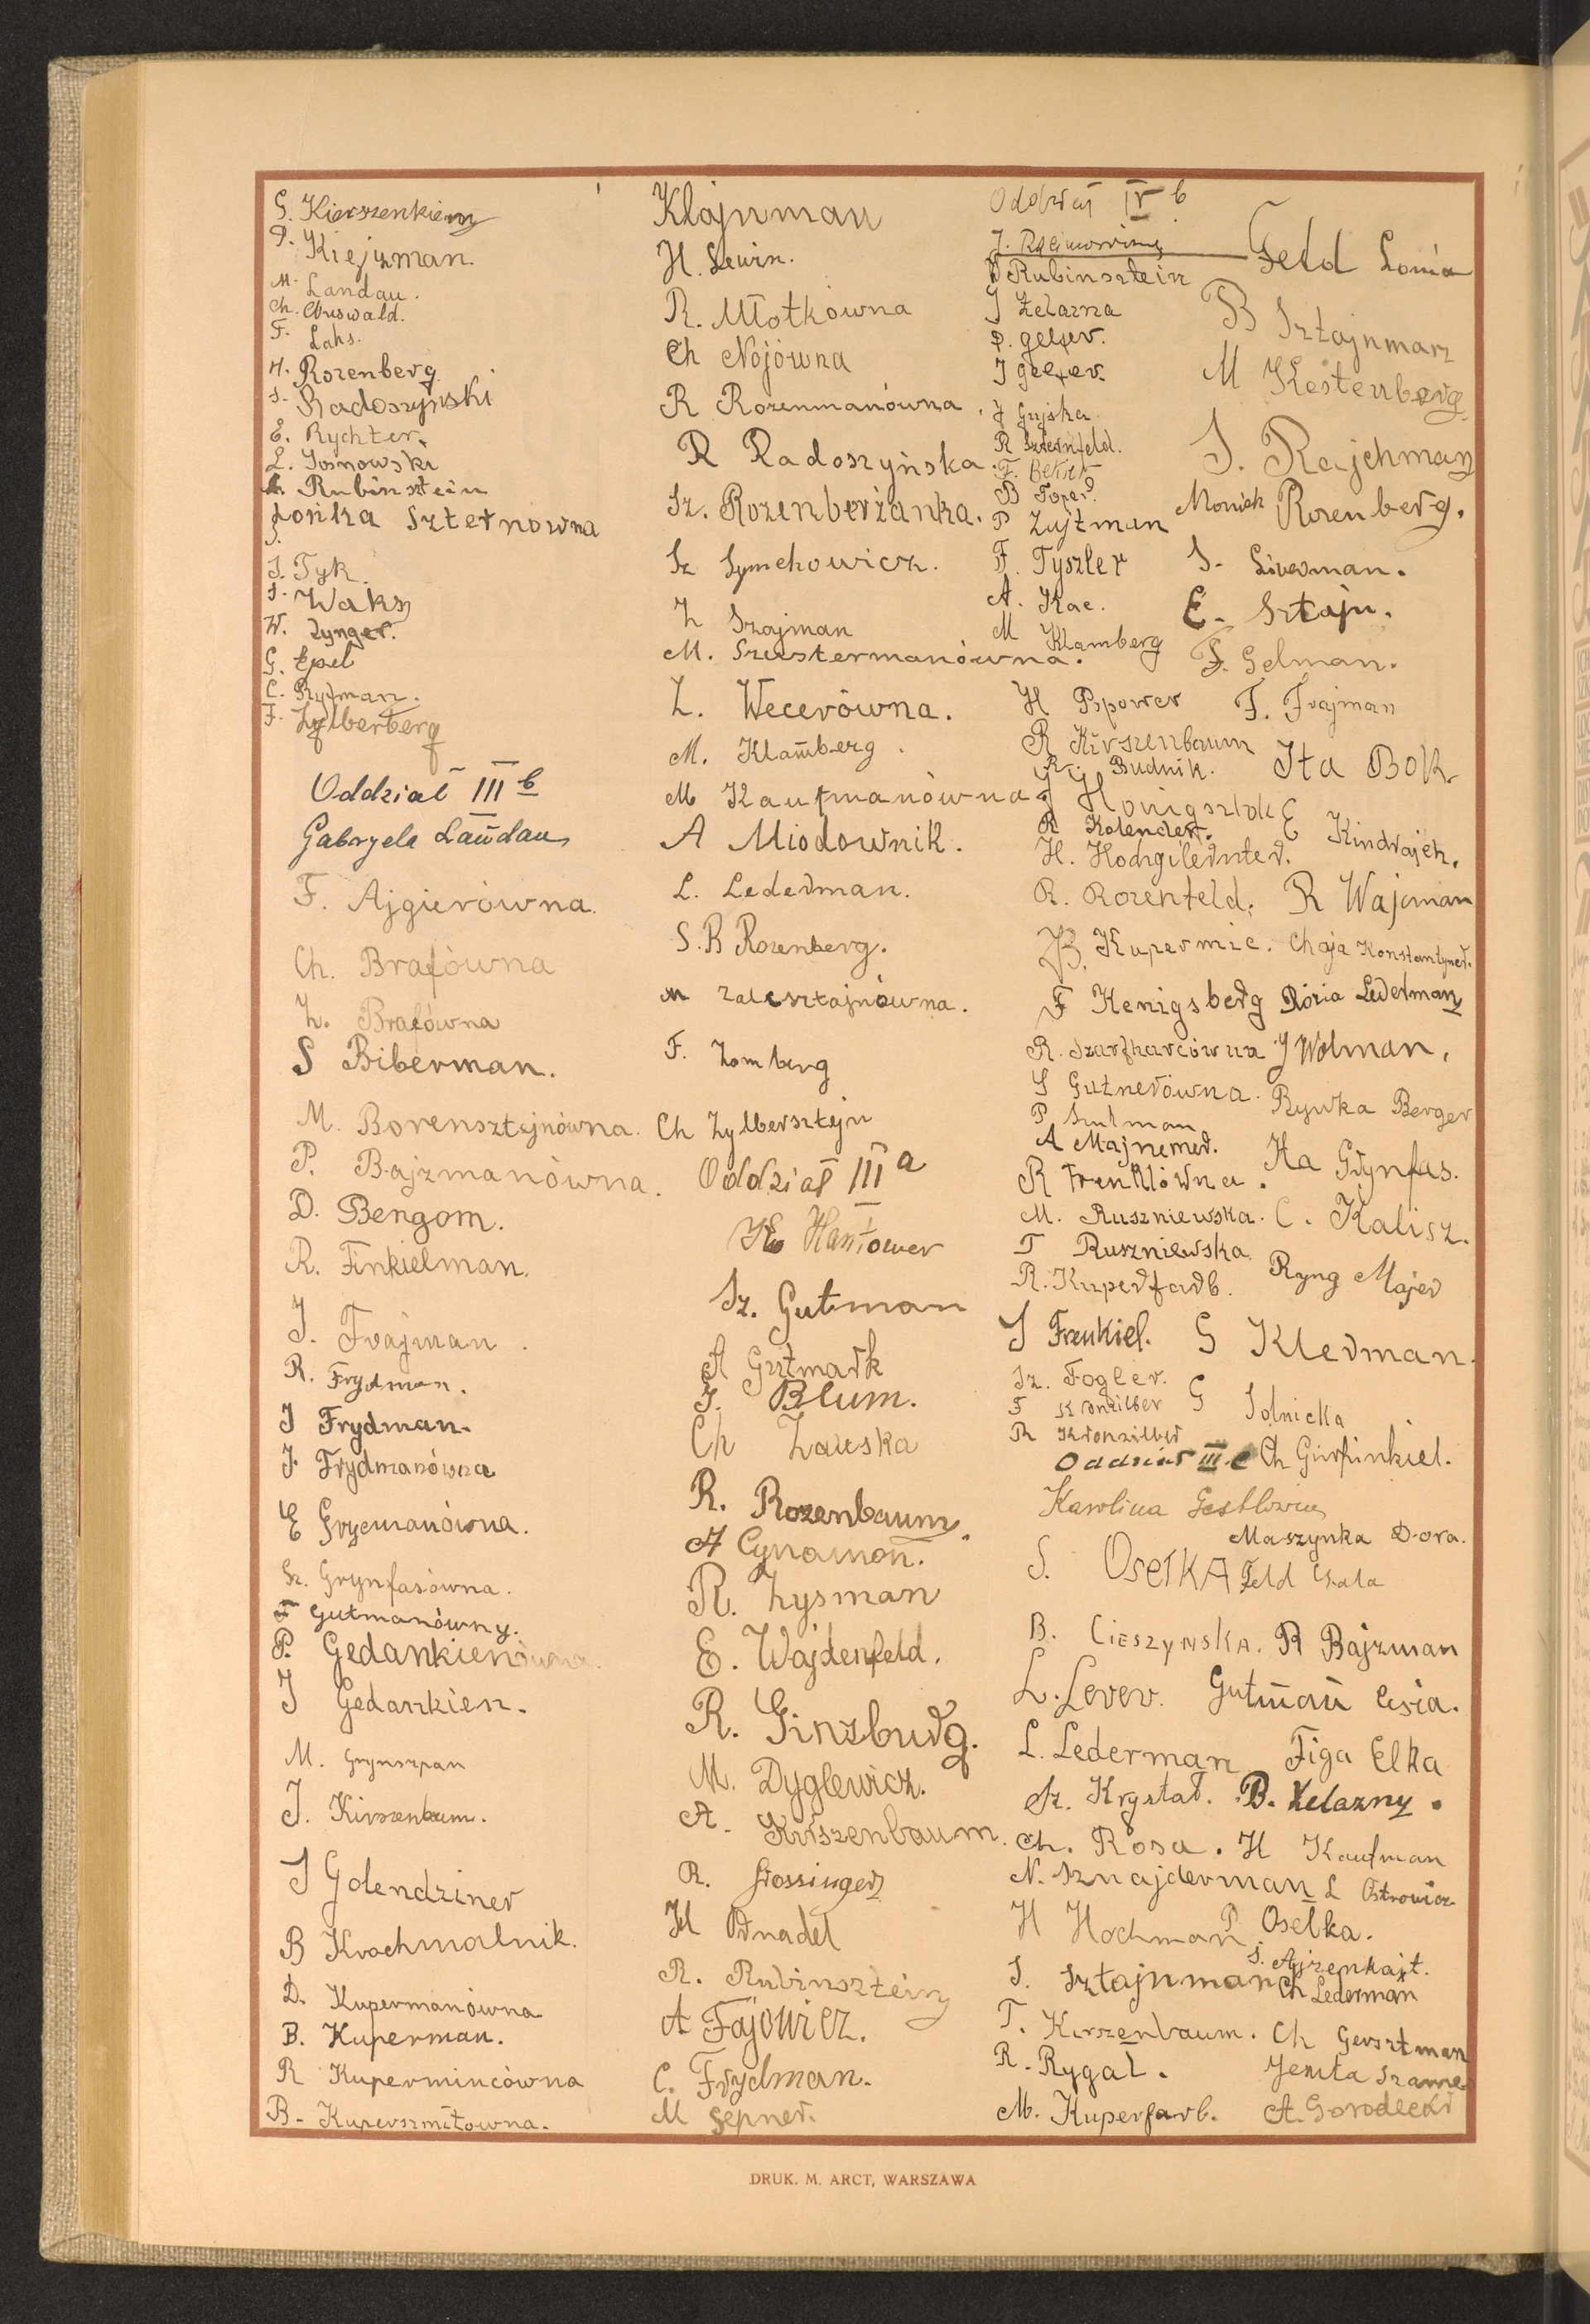 G. Kierszenkiern
P. Kiejzman.
M. Landau.
Ch. Gruswald.
F. Laks.
H. Rozenberg
S. Radoszyński
E. Rychter.
L. Sosnowski
A. Rubinsztein
Lonka Szternowna
S.
I. Tyk.
S. Waks
W. Zynger.
G. Epel
C. Ryfman.
F. Zylberberg
Oddział III b
Gabryela Landau
F. Ajgierówna.
Ch. Brafówna
Z. Brafówna
S Biberman.
M. Borensztejnówna.
P. Bajzmanówna.
D. Bengom.
R. Finkielman.
J. Frajman.
R. Frydman.
I Frydman.
J. Frydmanówna
E Grycmanówna.
Sz. Grynfasówna.
F Gutmanówny.
P. Gedankienówna.
J Gedankien.
M. Grynszpan
J. Kirszenbaum.
I Golendziner
B Krochmalnik.
D. Kupermanówna
B. Kuperman.
R Kupermincówna
B. Kuperszmitowna.
Klajnman
H. Lewin.
R. Młotkówna
Ch Nojówna
R Rozenmanówna.
R Radoszyńska.
Sz. Rozenberżanka.
Sz Symchowicz.
Z Szajman
M. Szustermanówna.
Z. Wecerówna.
M. Klamberg.
M Kaufmanówna
A Miodownik.
L. Lederman.
S. R Rozenberg.
M Zalcsztajnówna.
F. Zomberg
Ch Zylbersztejn
Oddział III a
Hantower
Sz. Gutman
A Gutmark
J. Blum.
Ch Załuska
R. Rozenbaum.
A Cynamon.
R. Zysman
E. Wajdenfeld.
R. Ginzburg.
M. Dyglewicz.
A. Kirszenbaum.
R. Grossinger
H Ornadel
R. Rubinsztein
A Fajowicz.
C. Frydman.
M Sepner.
Oddział IV b
Rubinsztein
J Zelazna
P. gelfer.
J gelfer.
J Gujska.
R Szternfeld.
F. Bekier
B Toper.
P Zujtman
F. Tyszler
A. Kac.
M Klamberg
H Popower
R Kirszenbaum
R. Budnik.
J Honigsztok
R Kolender.
H. Hochgilernter.
R. Rozenfeld.
B. Kupermic.
F Kenigsberg
R. Szarfharcówna
S Gutnerówna.
P Sulman
A Majnemer.
R Frenklówna.
M. Ruszniewska.
T Ruszniewska.
R. Kuperfarb.
S Frenkiel.
Sz. Fogler.
F Kronzilber
R Kronzilber
Oddział III. c
Karolina Gestlówna
S. Osełka
B. Cieszyńska.
L. Lerer.
L. Lederman
Sz. Kryształ.
Ch. Rosa.
N. Sznajderman
H Hochman
S. Sztajnman
T. Kirszenbaum.
R. Rygał.
M. Kuperfarb.
Feld Lonia
B Sztajnmarz
M Kestenberg
S. Rajchman
Moniek Rozenberg.
S. Liverman.
E. Sztajn.
F. Gelman.
F. Frajman
Ita Bok.
E Kindrajch.
R Wajcman
Chaja Konstantyner.
Rózia Lederman
J Wolman.
Rywka Berger
Ita Grynfas.
C. Kalisz.
Ryng Majer
G Klerman.
G Solnicka
Ch Gurfinkiel.
Maszynka Dora.
Feld Chala
R Bajzman
Gutman Cesia.
Figa Elka
B. Żelazny.
H Kaufman
L Ostrowicz
P. Osełka.
S. Ajzenkajt.
Ch Lederman
Ch Gersztman
Jenta Szames
A. Gorodecki
DRUK. M. ARCT, WARSZAWA